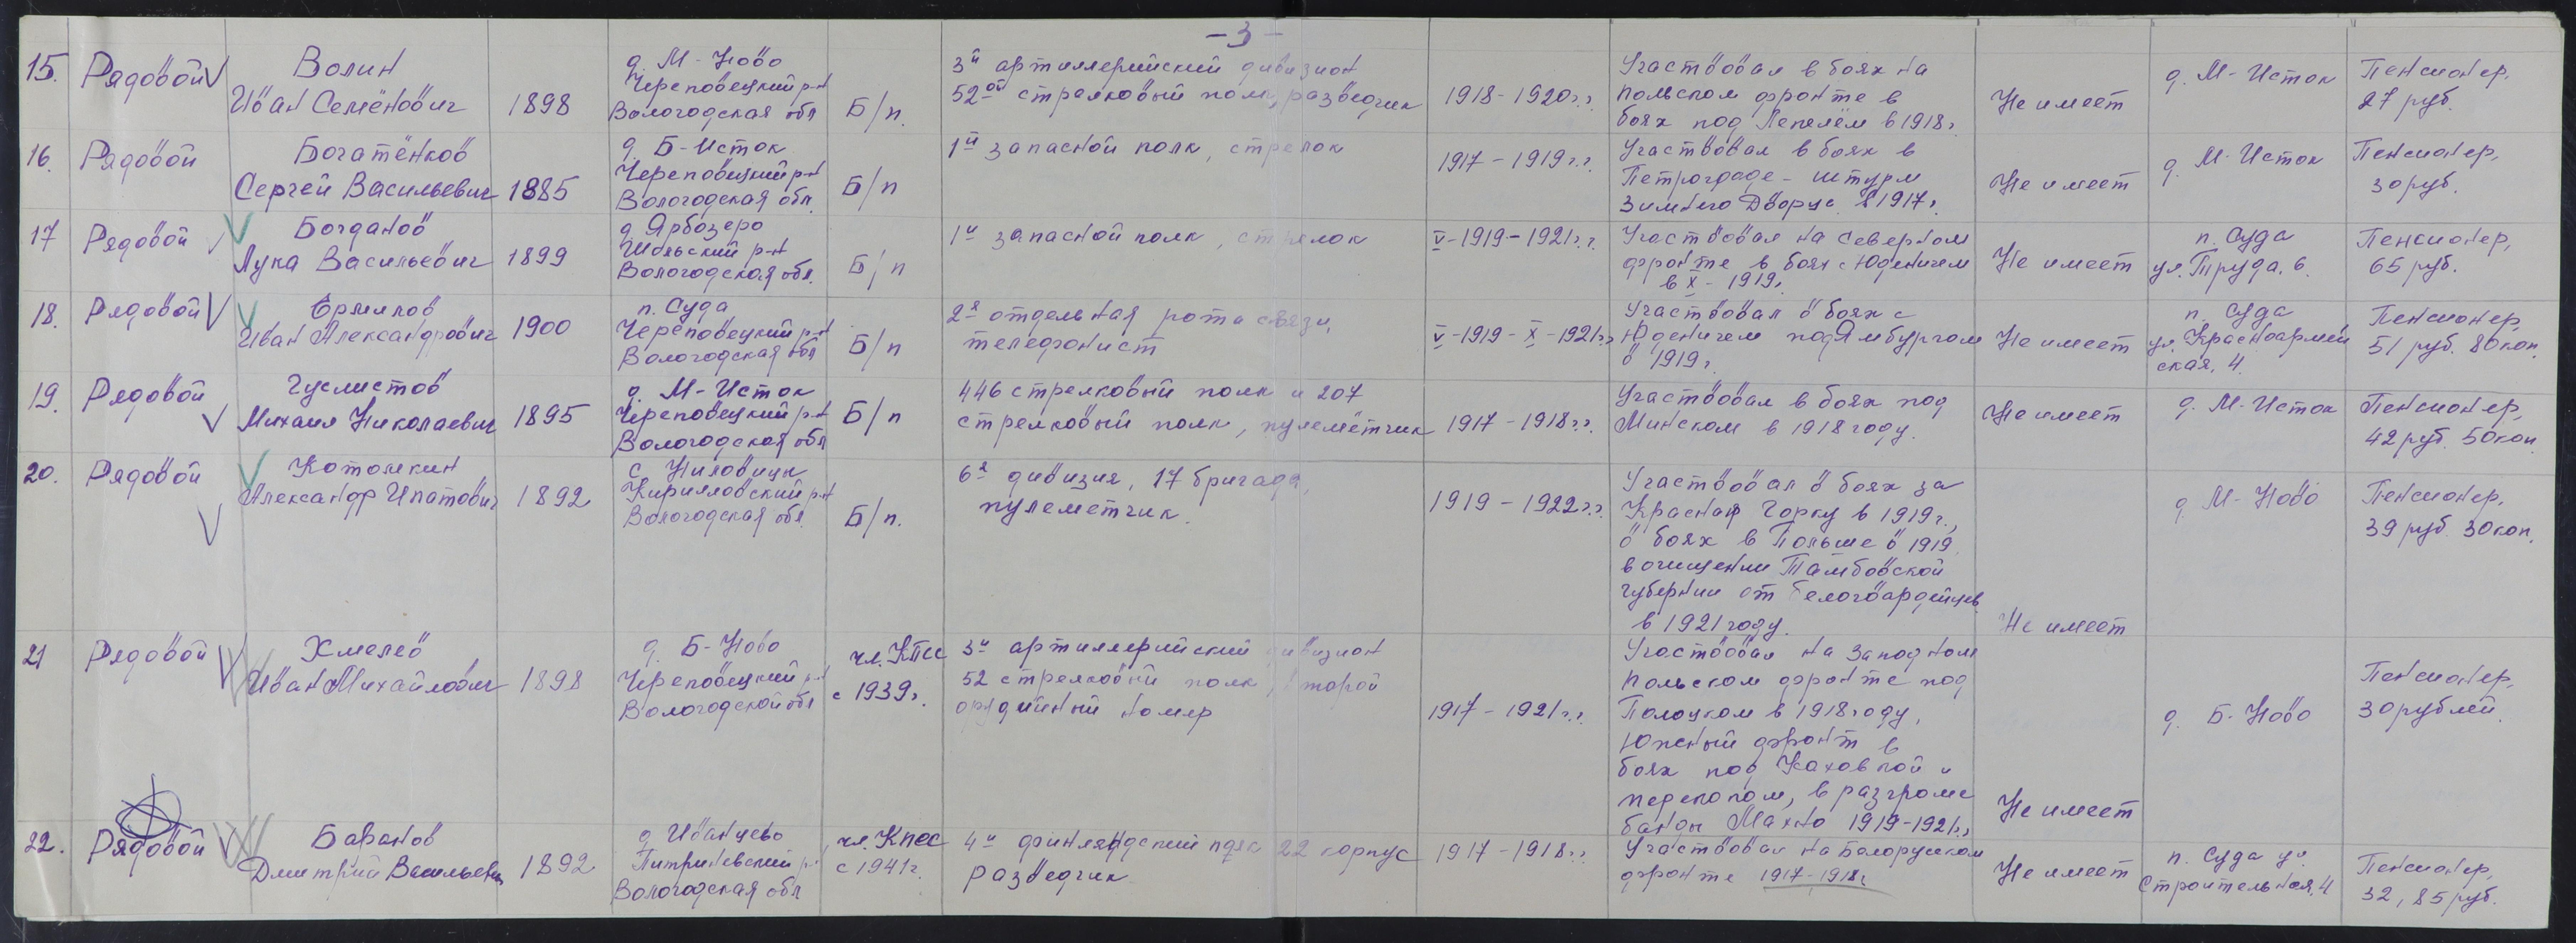 - 3 -
15. Рядовой
Волин
Иван Семёнович
1898
д. М-Ново
Череповецкий р-н
Вологодская обл
Б/п.
3й артиллерийский дивизион
52ой стрелковый полк, разведчик
1918-1920г.г.
Участвовал в боях на
польском фронте в
боях под Лепелем в 1918г.
Не имеет
д. М-Исток
Пенсионер,
27 руб.
16. Рядовой
Богатёнков
Сергей Васильевич
1885
д. Б-Исток
Череповецкий р-н
Вологодская обл.
Б/п
1й запасной полк, стрелок
1917-1919г.г.
Участвовал в боях в
Петрограде - штурм
Зимнего Дворца в 1917г.
Не имеет
д. М-Исток
Пенсионер,
30 руб.
17 Рядовой
Богданов
Лука Васильевич
1899
д Ярбозеро
Шольский р-н
Вологодская обл.
Б/п
1й запасной полк, стрелок
V-1919-1921г.г.
Участвовал на Северном
фронте в боях с Юденичем
в X-1919г.
Не имеет
п. Суда
ул. Труда. 6.
Пенсионер,
65 руб.
18. Рядовой
Ермилов
Иван Александрович
1900
п. Суда
Череповецкий р-н
Вологодская обл
Б/п
2я отдельная рота связи,
телефонист
V-1919-X-1921г.г.
Участвовал в боях с
Юденичем под Ямбургом
в 1919г.
Не имеет
п. Суда
ул. Красноармей
ская, 4.
Пенсионер,
51 руб. 80 коп.
19. Рядовой
Гуслистов
Михаил Николаевич
1895
д. М-Исток
Череповецкий р-н
Вологодская обл
Б/п
446 стрелковый полк и 207
стрелковый полк, пулемётчик
1917-1918г.г.
Участвовал в боях под
Минском в 1918 году.
Не имеет
д. М-Исток
Пенсионер,
42 руб. 50 коп.
20. Рядовой
Котомкин
Александр Ипатович
1892
с. Ниловицы
Кирилловский р-н
Вологодская обл.
Б/п.
6я дивизия, 17 бригада,
пулеметчик.
1919-1922г.г.
Участвовал в боях за
Красная Горку в 1919г.,
в боях в Польше в 1919
в очищении Тамбовской
губернии от белогвардейцев
в 1921 году.
Не имеет
д. М-Ново
Пенсионер,
39 руб. 30 коп.
21 Рядовой
Хмелев
Иван Михайлович
1898
д. Б-Ново
Череповецкий р-н
Вологодской обл
чл. КПСС
с 1939г.
3й артиллерийский дивизион
52 стрелковый полк, второй
орудийный номер
1917-1921г.г.
Участвовал на западном
польском фронте под
Полоцком в 1918 году,
Южный фронт в
боях под Каховкой и
перекопом, в разгроме
банды Махно 1919-1921г.,
Не имеет
д. Б-Ново
Пенсионер,
30 рублей.
22. Рядовой
Баранов
Дмитрий Васильевич
1892
д Иванцево
Петриневский р-н
Вологодская обл
чл. КПСС
с 1941г.
4й финляндский полк 22 корпус
разведчик
1917-1918г.г.
Участвовал на Белорусском
фронте 1917-1918г
Не имеет
п. Суда ул.
Строительная, 4
Пенсионер,
32,85 руб.